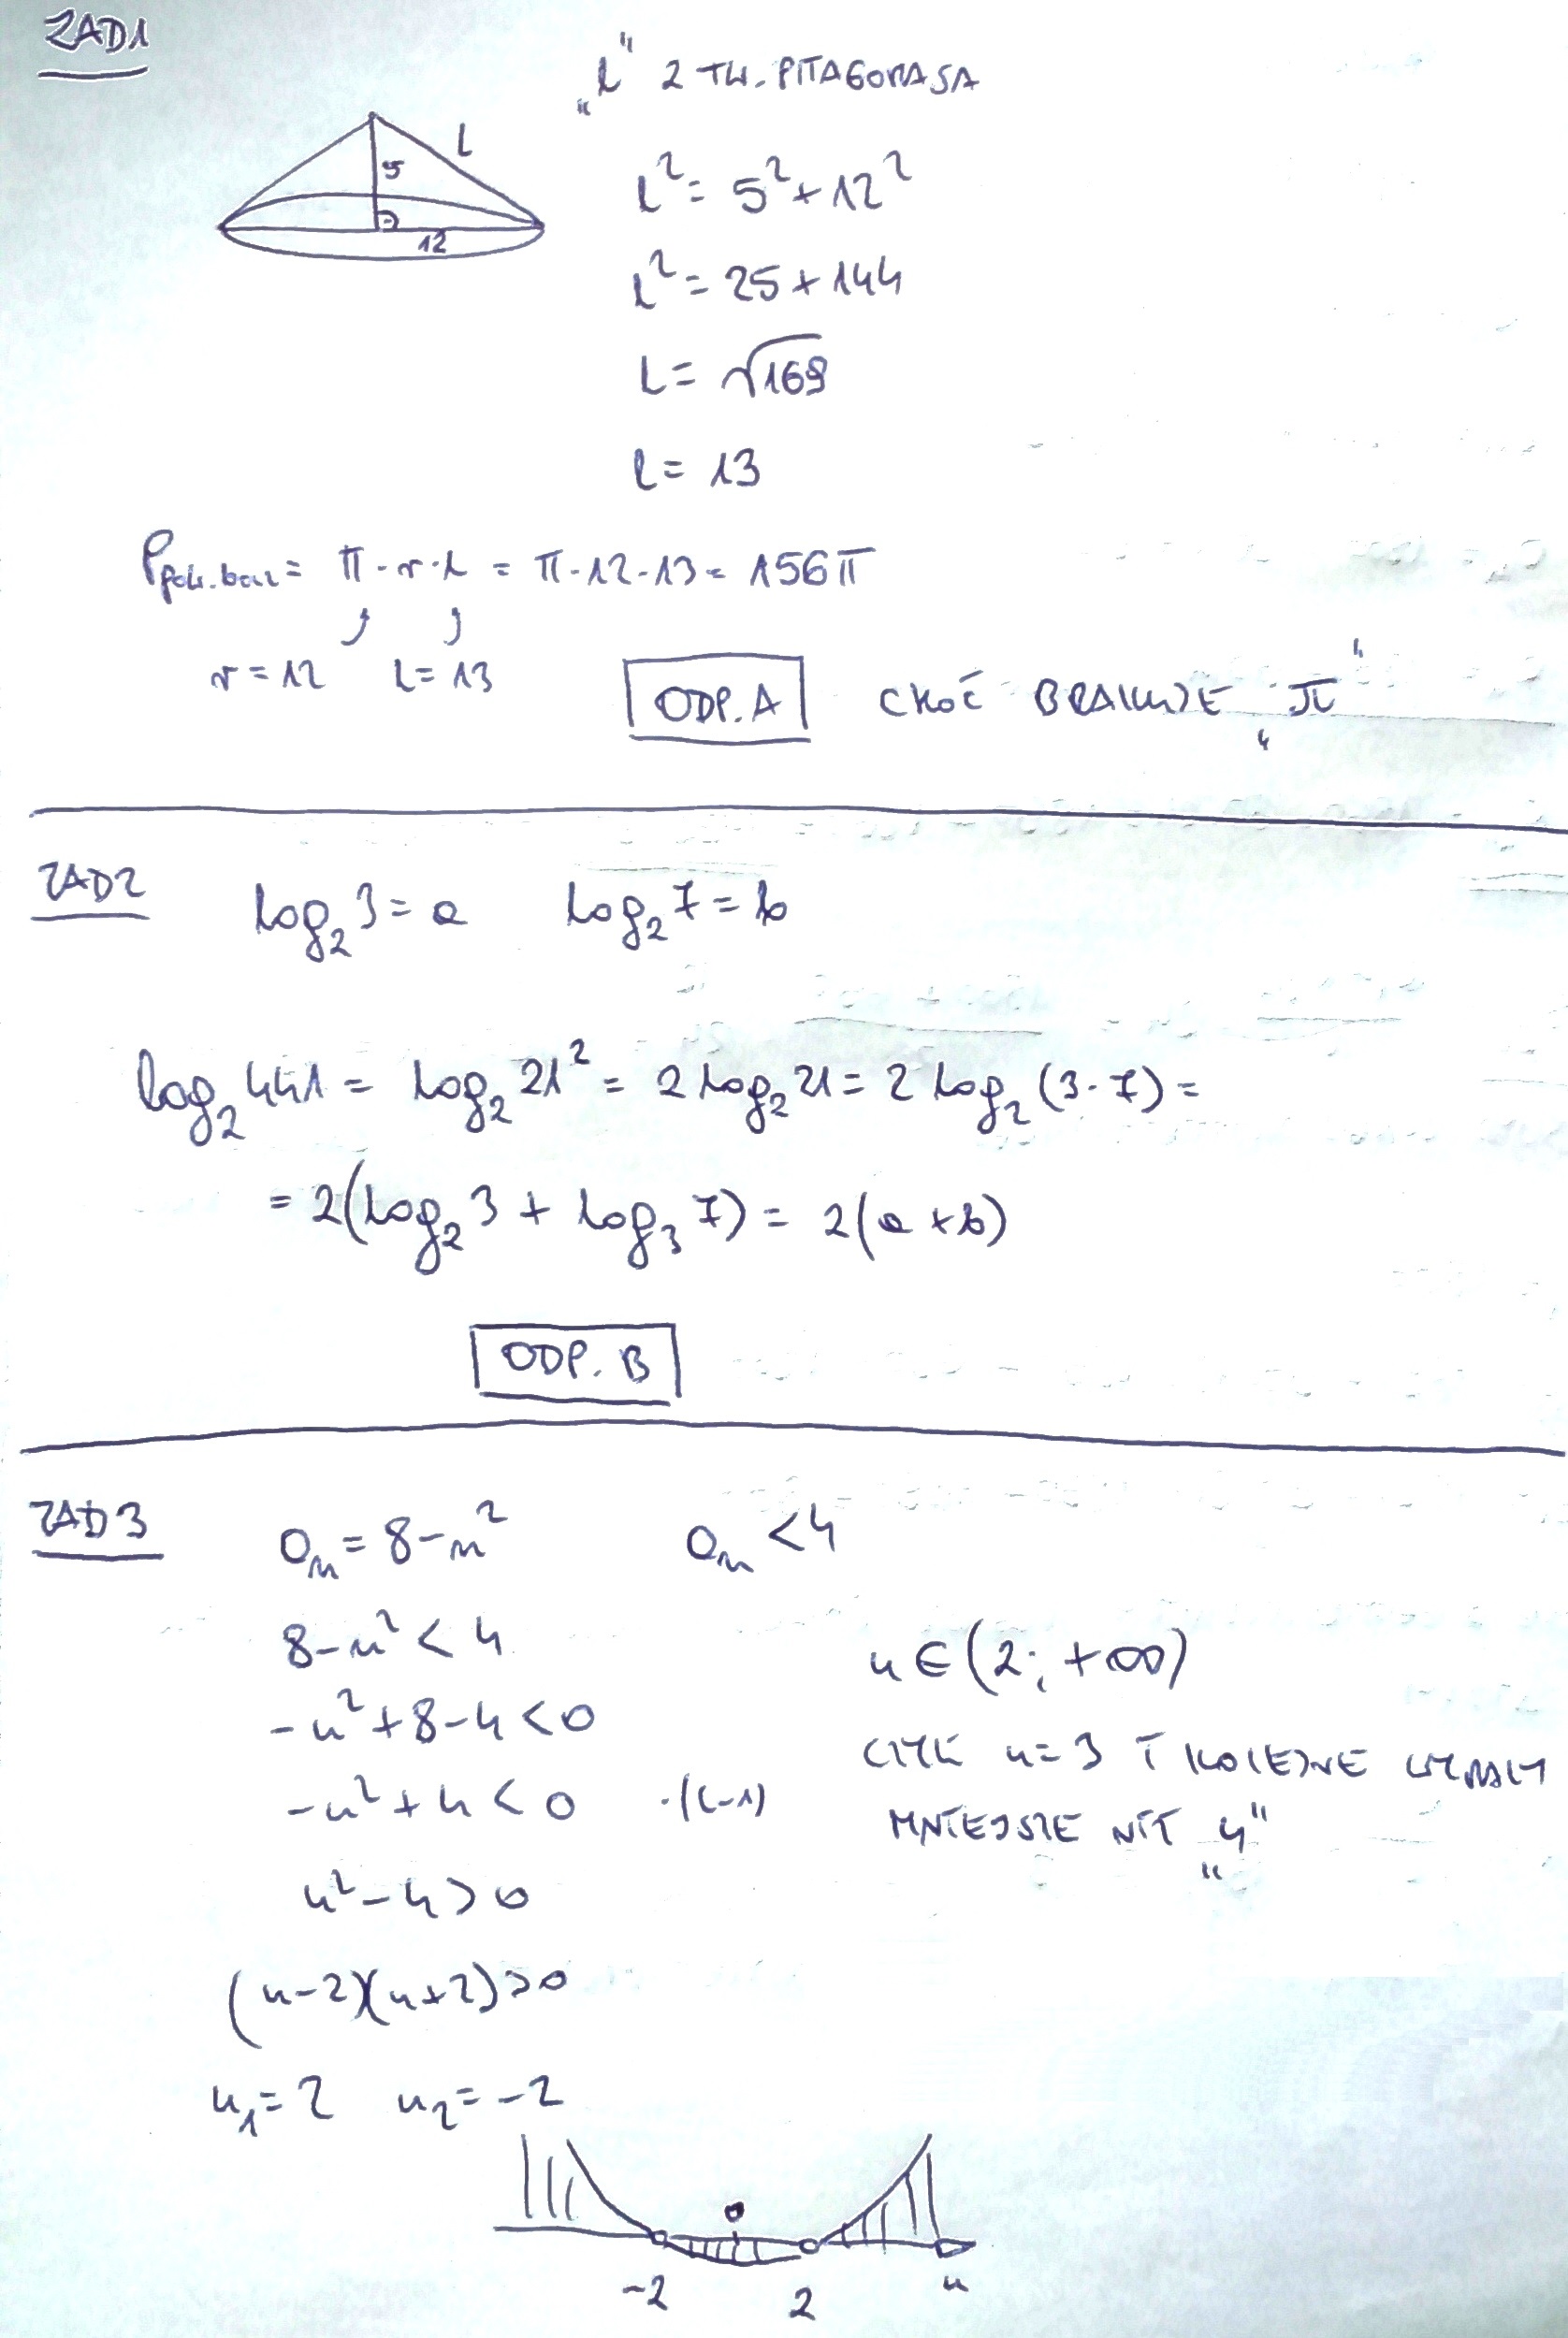 ZAD1
„l" Z TW. PITAGORASA
l
5
12
l² = 5² + 12²
l² = 25 + 144
l = √169
l = 13
Ppow.bocz = π · r · l = π · 12 · 13 = 156π
r = 12 l = 13
ODP. A CHOĆ BRAKUJE „π"
ZAD2
log₂3 = a log₂7 = b
log₂441 = log₂21² = 2log₂21 = 2log₂(3·7) =
= 2(log₂3 + log₃7) = 2(a+b)
ODP. B
ZAD3
aₙ = 8 - n² aₙ < 4
8 - n² < 4
-n² + 8 - 4 < 0
-n² + 4 < 0 ·/(-1)
n² - 4 > 0
(n-2)(n+2) > 0
n₁ = 2 n₂ = -2
n ∈ (2; +∞)
CZYLI n = 3 I KOLEJNE WYRAZY
MNIEJSZE NIŻ „4"
-2 2 n